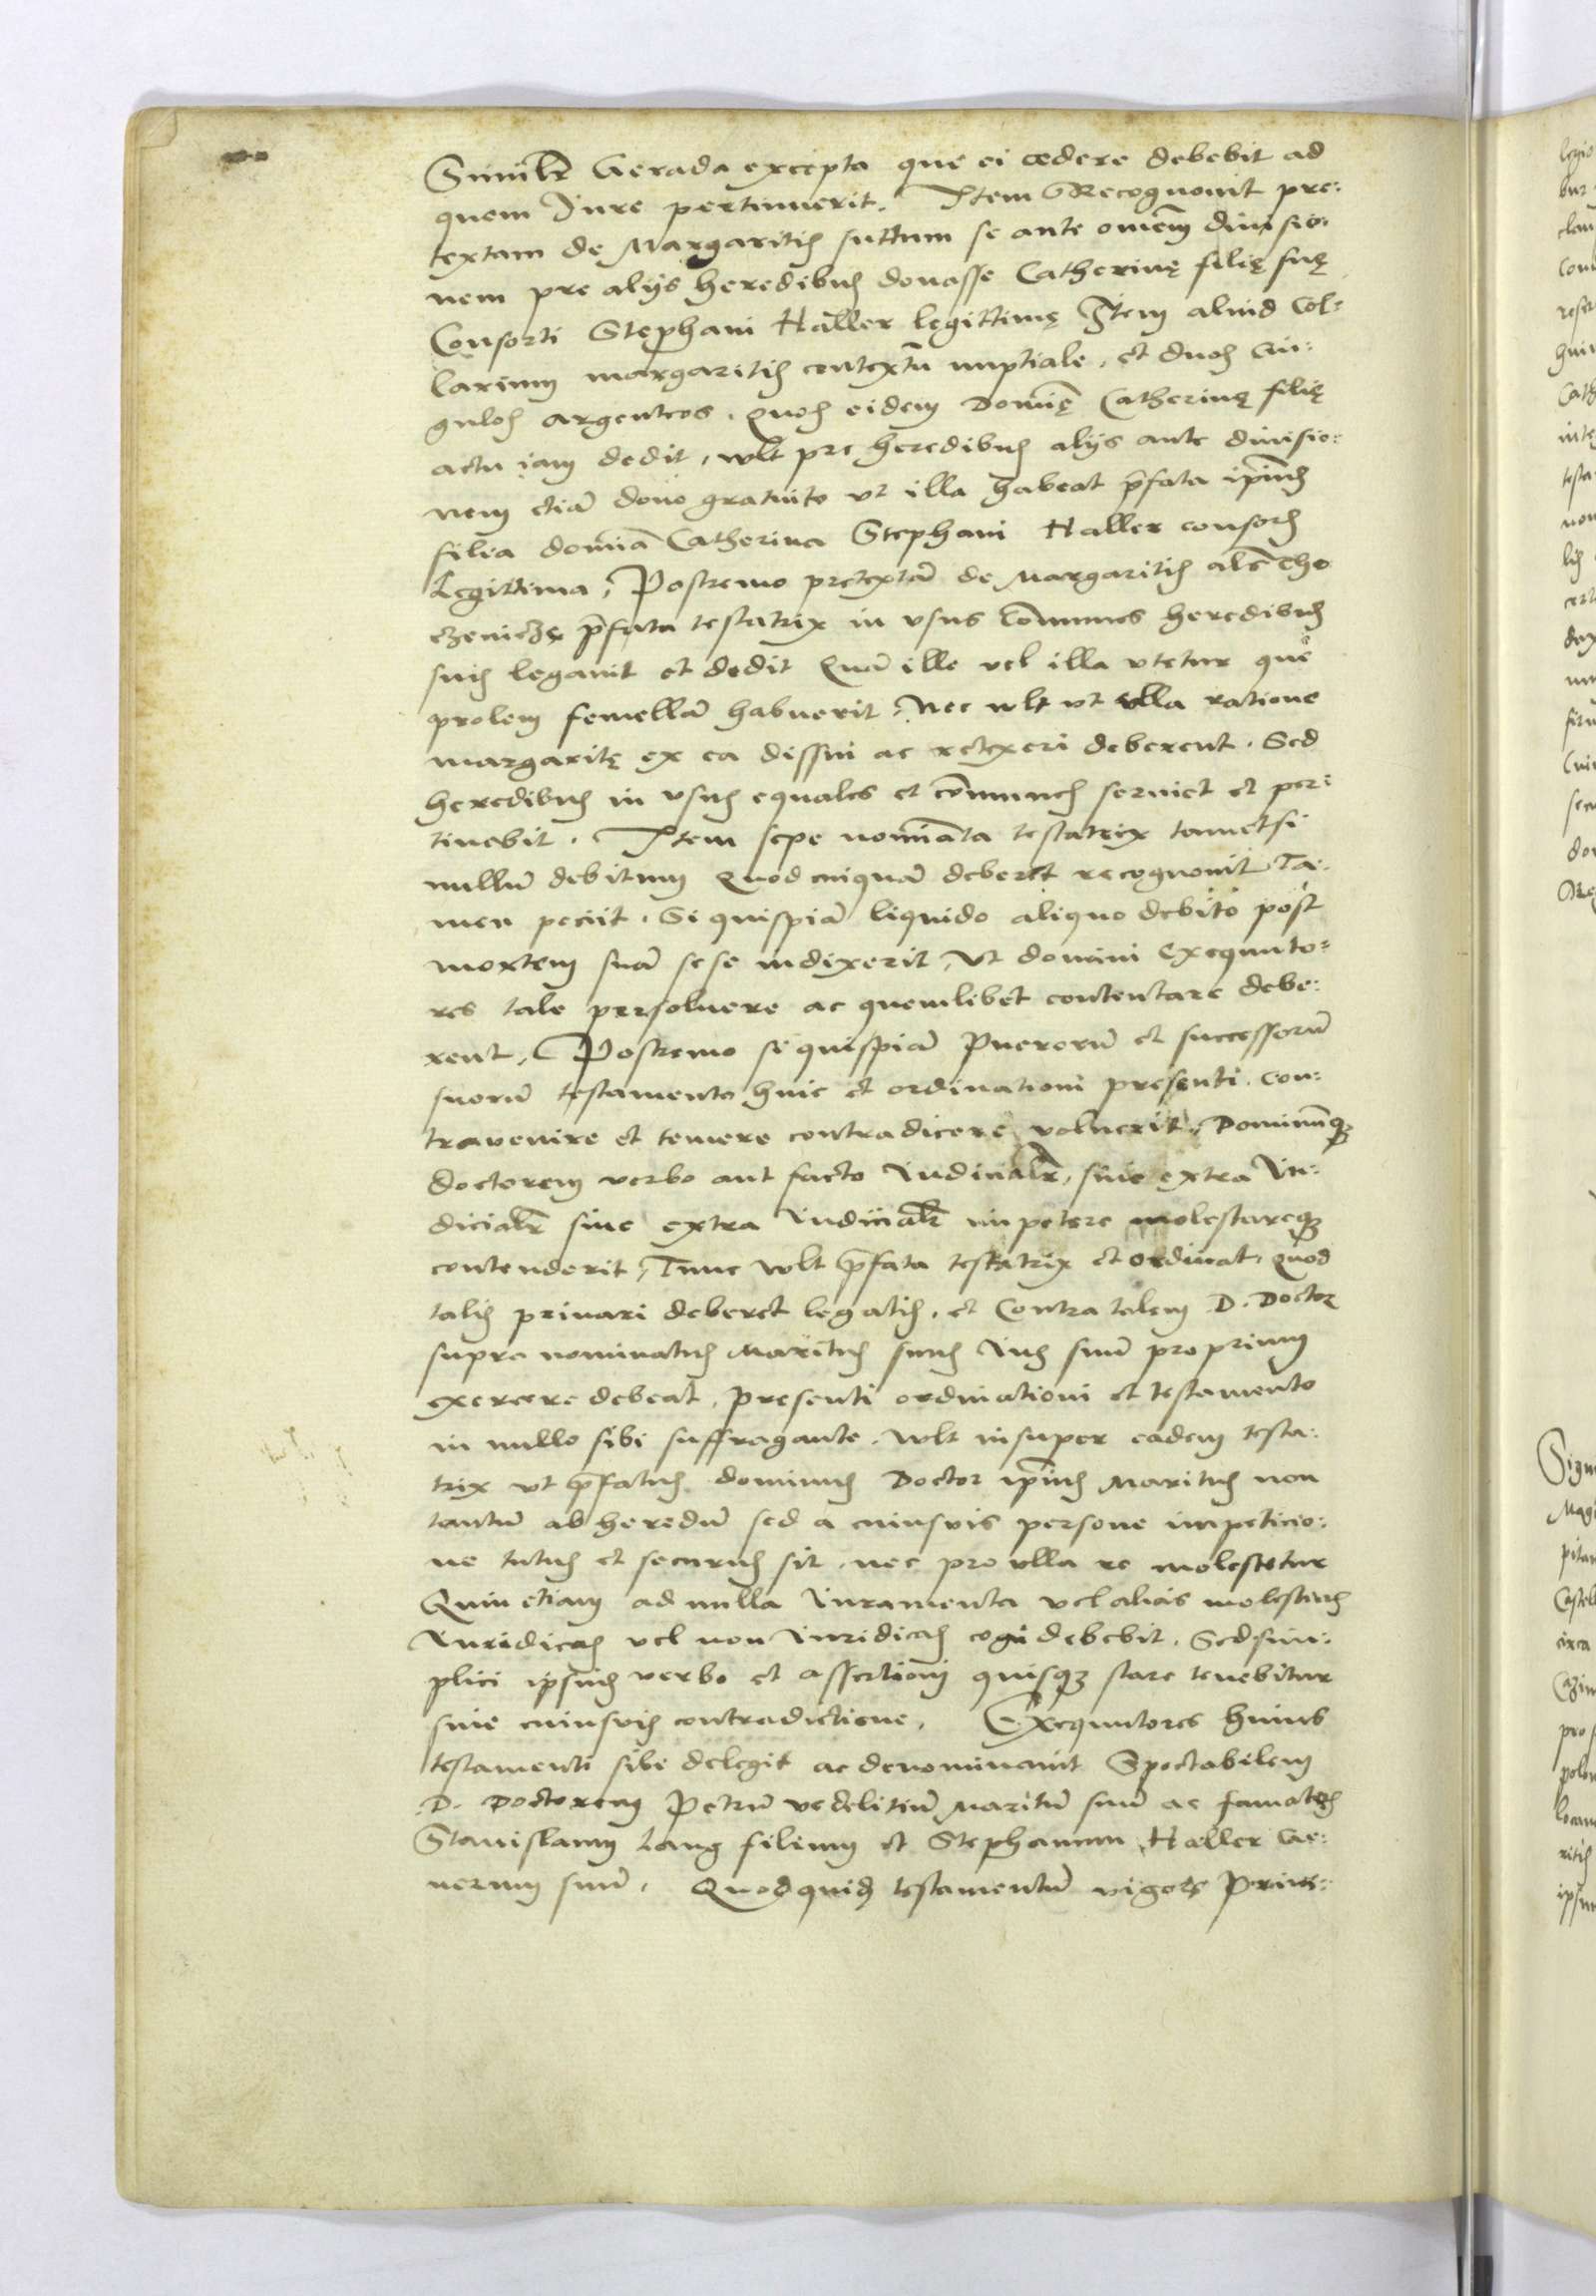 Similr Gerada excepta que ei cedere debebit ad
quem Iure pertinuerit. Item Recognouit pre:
textam de Margaritis suttum se ante omem diuisio:
nem pre alijs heredibus donasse Catherinę filię suę
Consorti Stephani Haller legittimę Item aliud Col:
larium margaritis contextū nuptiale, et duos Cin:
gulos argenteos. Quos eidem Domię Catherinę filię
actu iam dedit, wlt pre heredibus alijs ante diuisio:
nem etiā dono gratuito vt illa habeat p̄fata ipius
filia domiā Catherina Stephani Haller consors
Legittima, Postremo pretextā de Margaritis als Tho
czeniczę p̄fata testatrix in vsus Cōmunes heredibus
suis legauit et dedit Quā ille vel illa vtetur que
prolem femellā habuerit, Nec wlt vt vlla ratione
margaritę ex ea dissui ac retexeri deberent. Sed
heredibus in vsus equales et cōmunes seruiet et per:
tinebit. Item sepe nomiāta testatrix tametsi
nullū debitum Quod cuiquā deberet recognouit Ta:
men peciit. Si quispiā liquido aliquo debito post
mortem suā sese indixerit, Vt domini Exequuto:
res tale persoluere ac quemlibet contentare debe:
rent, Postremo si quispiā Puerorū et successorū
suorū testamento huic et ordinationi presenti con:
trauenire et temere contradicere voluerit, Dominūq3
doctorem verbo aut facto Iudicialr, siue extra Iu:
dicialr siue extra Iudicialr impetere molestareq3
contenderit, Tunc wlt p̄fata testatrix et ordinat, quod
talis priuari deberet legatis, et Contra talem D. Doctor
supra nominatus Maritus suus Ius suū proprium
exercere debeat, presenti ordinationi et testamento
in nullo sibi suffragante. wlt insuper eadem testa:
trix vt p̄fatus dominus Doctor ipius Maritus non
tantū ab heredū sed a cuiusuis persone impeticio:
ne tutus et securus sit, nec pro vlla re molestetur
Quin etiam ad nulla Iuramenta vel alias molestias
Iuridicas vel non Iuridicas cogi debebit. Sed sim:
plici ipsius verbo et assertioni quisq3 stare tenebitur
sine cuiusuis contradictione. Exequutores huius
testamenti sibi delegit ac denominauit Spectabilem
D. Doctorem Petrū vedelitiū Maritū suū ac famatos
Stanislaum Lang filium et Stephanum Haller Ge:
nerum suū. Quodquid testamentū vigore Priui: